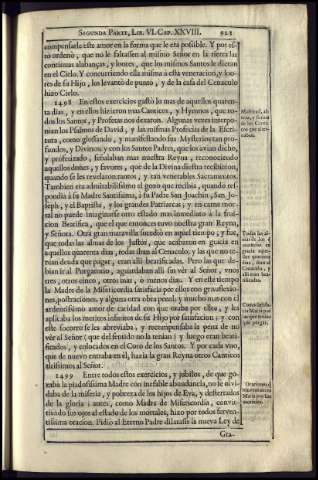 SEGUNDA PARTE, LIB. VI. CAP. XXVIII.
compensarle este amor en la forma que le era posible. Y por es-
to ordenò, que no le faltassen al mismo Señor en la tierra las
continuas alabanças, y loores, que los mismos Santos le dictan
en el Cielo. Y concurriendo ella misma à esta veneracion, y loo-
res de su Hijo, los levantò de punto, y de la casa del Cenaculo
hizo Cielo.
1498 En estos exercicios gastò lo mas de aquellos quaren-
ta dias, y en ellos hizieron mas Canticos, y Hymnos, que to-
dos los Santos, y Profetas nos dexaron. Algunas vezes interpo-
nian los Psalmos de David, y las mismas Profecias de la Escri-
tura, como glossando, y manifestando sus Mysterios tan pro-
fundos, y Divinos: y con los Santos Padres, que los avian dicho,
y profetizado, señalaban mas nuestra Reyna, reconociendo
aquellos dones, y favores, que de la Divina diestra recibieron,
quando se les revelaron tantos, y tan venerables Sacramentos.
Tambien era admirabilissimo el gozo que recibia, quando res-
pondia à su Madre Santissima, à su Padre San Joachin, San Jo-
seph, y el Baptista, y los grandes Patriarcas; y en carne mor-
tal no puede imaginarse otro estado mas inmediato à la frui-
cion Beatifica, que el que entonces tuvo nuestra gran Reyna,
y Señora. Otra gran maravilla sucediò en aquel tiempo; y fue,
que todas las almas de los Justos, que acabaron en gracia en
aquellos quarenta dias, todas iban al Cenaculo; y las que no te-
nian deuda que pagar, eran alli beatificadas. Pero las que de-
bian ir al Purgatorio, aguardaban alli sin vèr al Señor, unos
tres, otros cinco, otros mas, ò menos dias. Y en este tiempo
la Madre de la Misericordia satisfacia por ellos con genuflexio-
nes, postraciones, y alguna otra obra penal; y mucho mas con el
ardentissimo amor de caridad con que oraba por ellos, y les
aplicaba los meritos infinitos de su Hijo por satisfacion; y con
este socorro se les abreviaba, y recompensaba la pena de no
vèr al Señor (que del sentido no la tenian) y luego eran beati-
ficados, y colocados en el Coro de los Santos. Y por cada uno,
que de nuevo entraba en èl, hazia la gran Reyna otros Canticos
altissimos al Señor.
1499 Entre todos estos exercicios, y jubilos, de que go-
zaba la piadosissima Madre con inefable abundancia, no se olvi-
daba de la miseria, y pobreza de los hijos de Eva, y desterrados
de la gloria: antes, como Madre de Misericordia, convir-
tiendo sus ojos al estado de los mortales, hizo por todos ferven-
tissima oracion. Pidiò al Eterno Padre dilatasse la nueva Ley de
Gra-